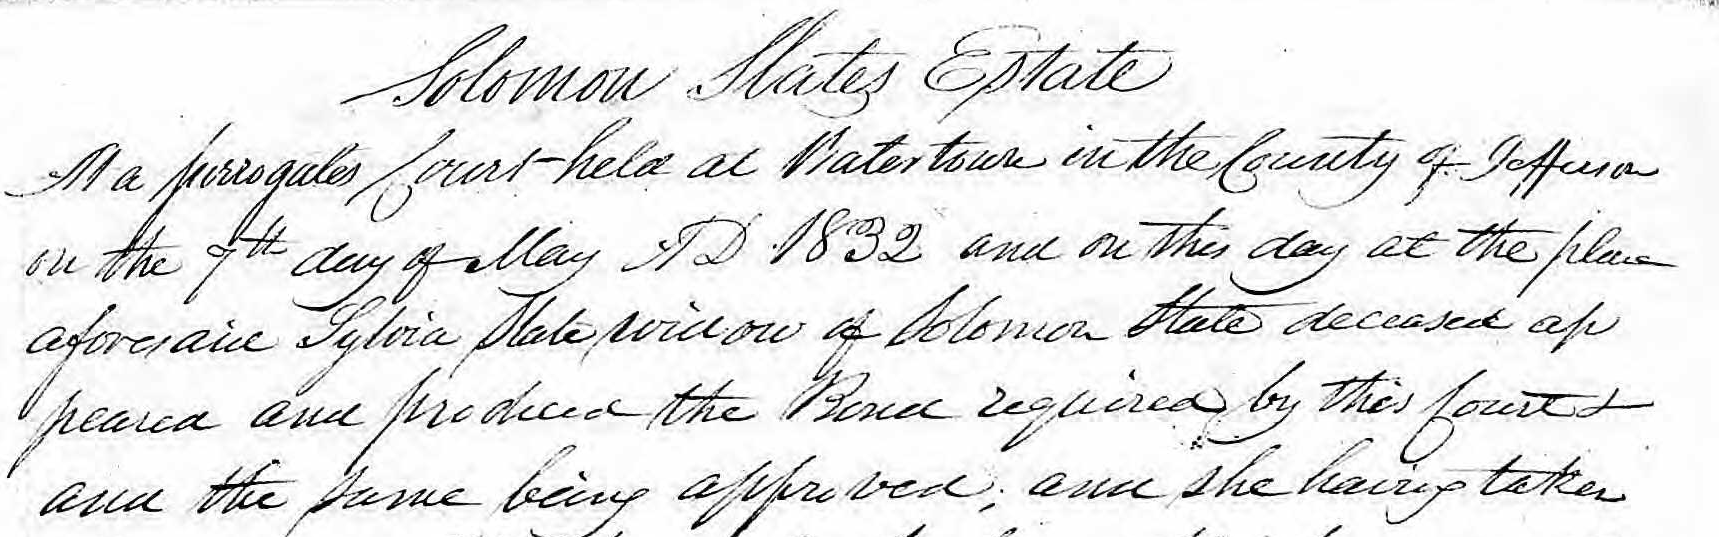 Solomon Slates Estate
At a surrogates Court held at Watertown in the County of Jefferson
on the 7th day of May AD 1832 and on this day at the place
aforesaid Sylvia Slate widow of Solomon Slate deceased ap
peared and produced the Bond required by this Court &
and the same being approved, and she having taken